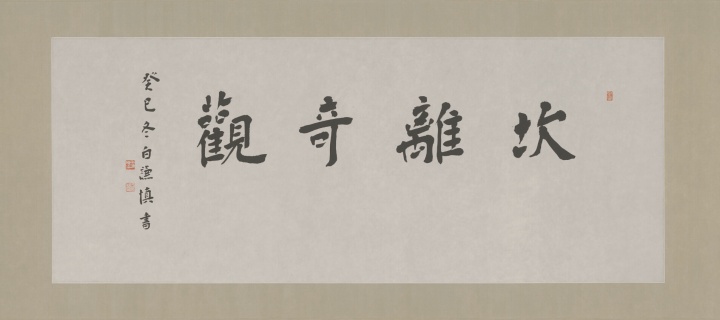 坎離奇觀
癸巳冬白謙慎書